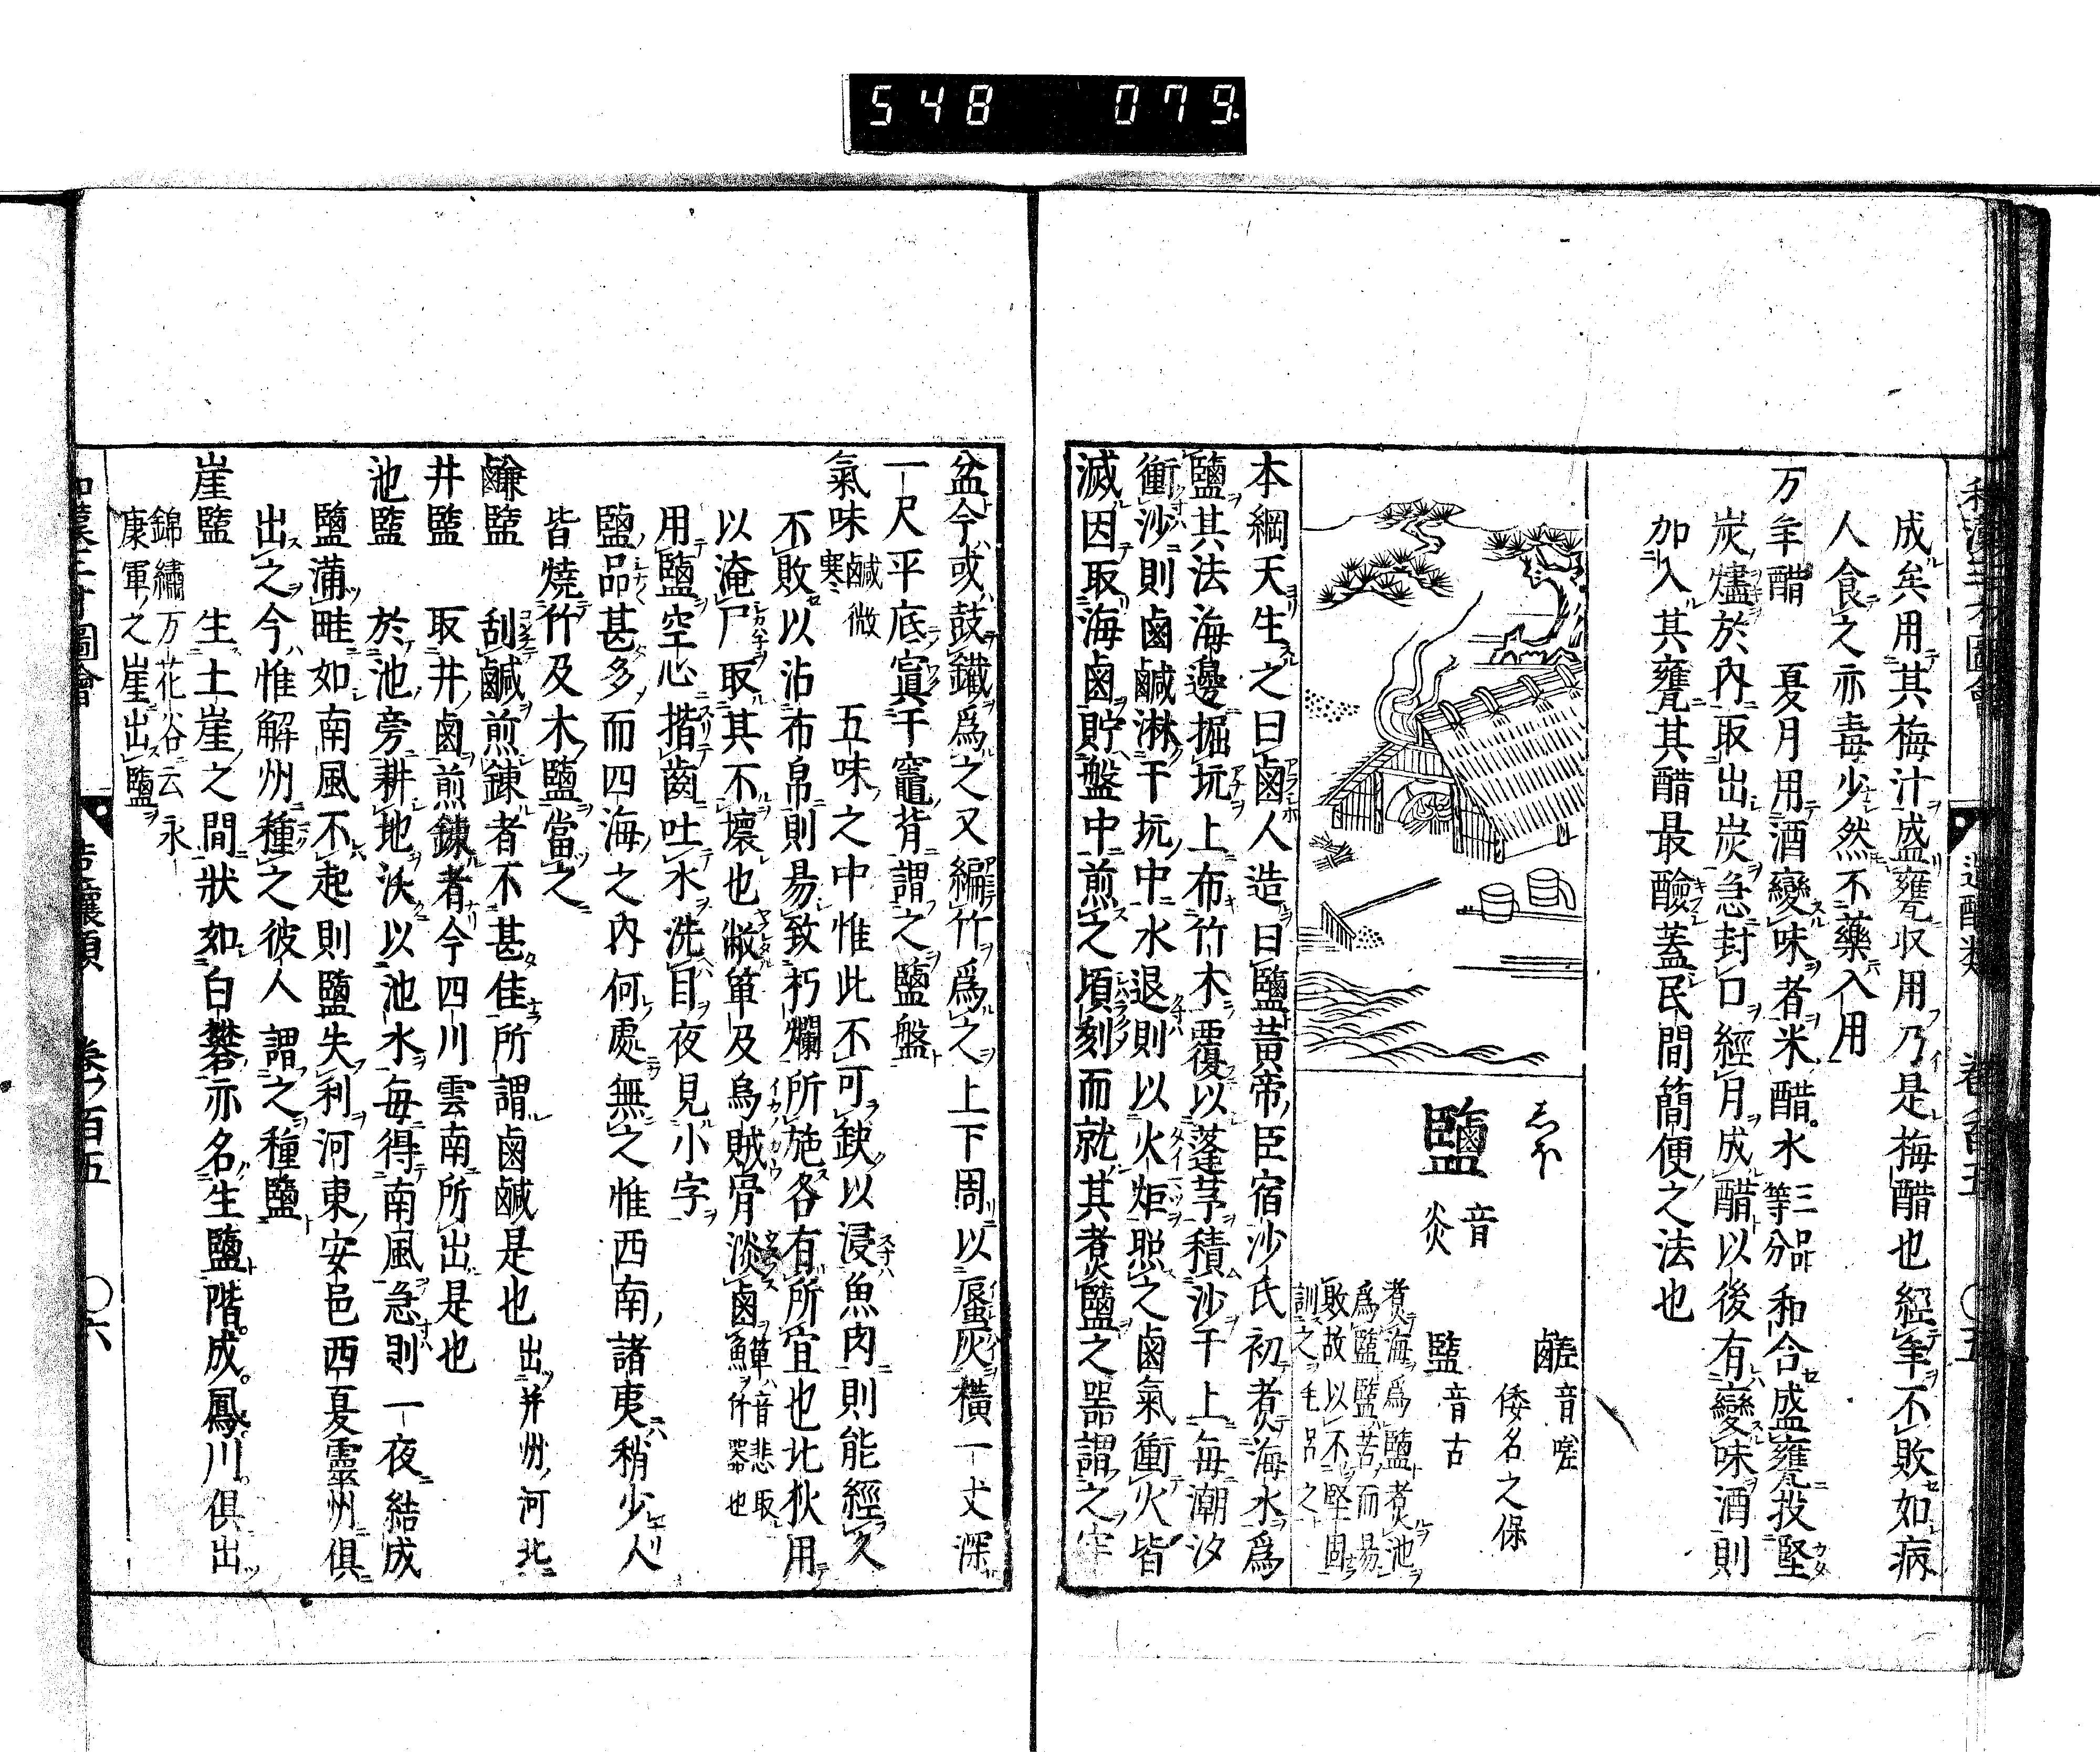 548 079
成矣用其梅汁盛甕収用乃是梅醋也經年不敗如病
人食之亦毒少然不藥入用
万年醋 夏月用酒變味者米醋水三品等分和合盛甕投堅
炭爐於内取出炭急封口經月成醋以後有變味酒則
加入其甕其醋最醶蓋民間簡便之法也
鹽 音炎
しほ
鹺 音嵯
倭名之保
盬 音古
煮海爲鹽煮池
爲盬盬苦而易
敗故以不堅固
訓之毛呂之
本綱天生之曰鹵人造曰鹽黃帝臣宿沙氏初煮海水爲
鹽其法海邊掘坑上布竹木覆以蓬茅積沙于上毎潮汐
衝沙則鹵鹹淋于坑中水退則以火炬照之鹵氣衝火皆
滅因取海鹵貯盤中煎之頃刻而就其煮鹽之噐謂之牢
盆今或鼓鐵爲之又編竹爲之上下周以蜃灰橫一丈深
一尺平底寘于竈背謂之鹽盤
氣味鹹微寒 五味之中惟此不可缺以浸魚肉則能經久
不敗以沾布帛則易致朽爛所施各有所宜也北狄用
以淹尸取其不壞也敝箄及烏賊骨淡鹵箄音悲取魚竹器也
用鹽空心揩齒吐水洗目夜見小字
鹽品甚多而四海之内何處無之惟西南諸夷稍少人
皆燒竹及木鹽當之
鹻盬 刮鹹煎錬者不甚佳所謂鹵鹹是也出并州河北
井盬 取井鹵煎錬者今四川雲南所出是也
池盬 於池旁耕地沃以池水毎得南風急則一夜結成
鹽滿畦如南風不起則鹽失利河東安邑西夏靈州倶
出之今惟解州種之彼人謂之種鹽
崖盬 生土崖之間狀如白礬亦名生鹽階成鳳川倶出
錦繡万花谷云永
康軍之崖出鹽
造釀類 卷百五 〇六